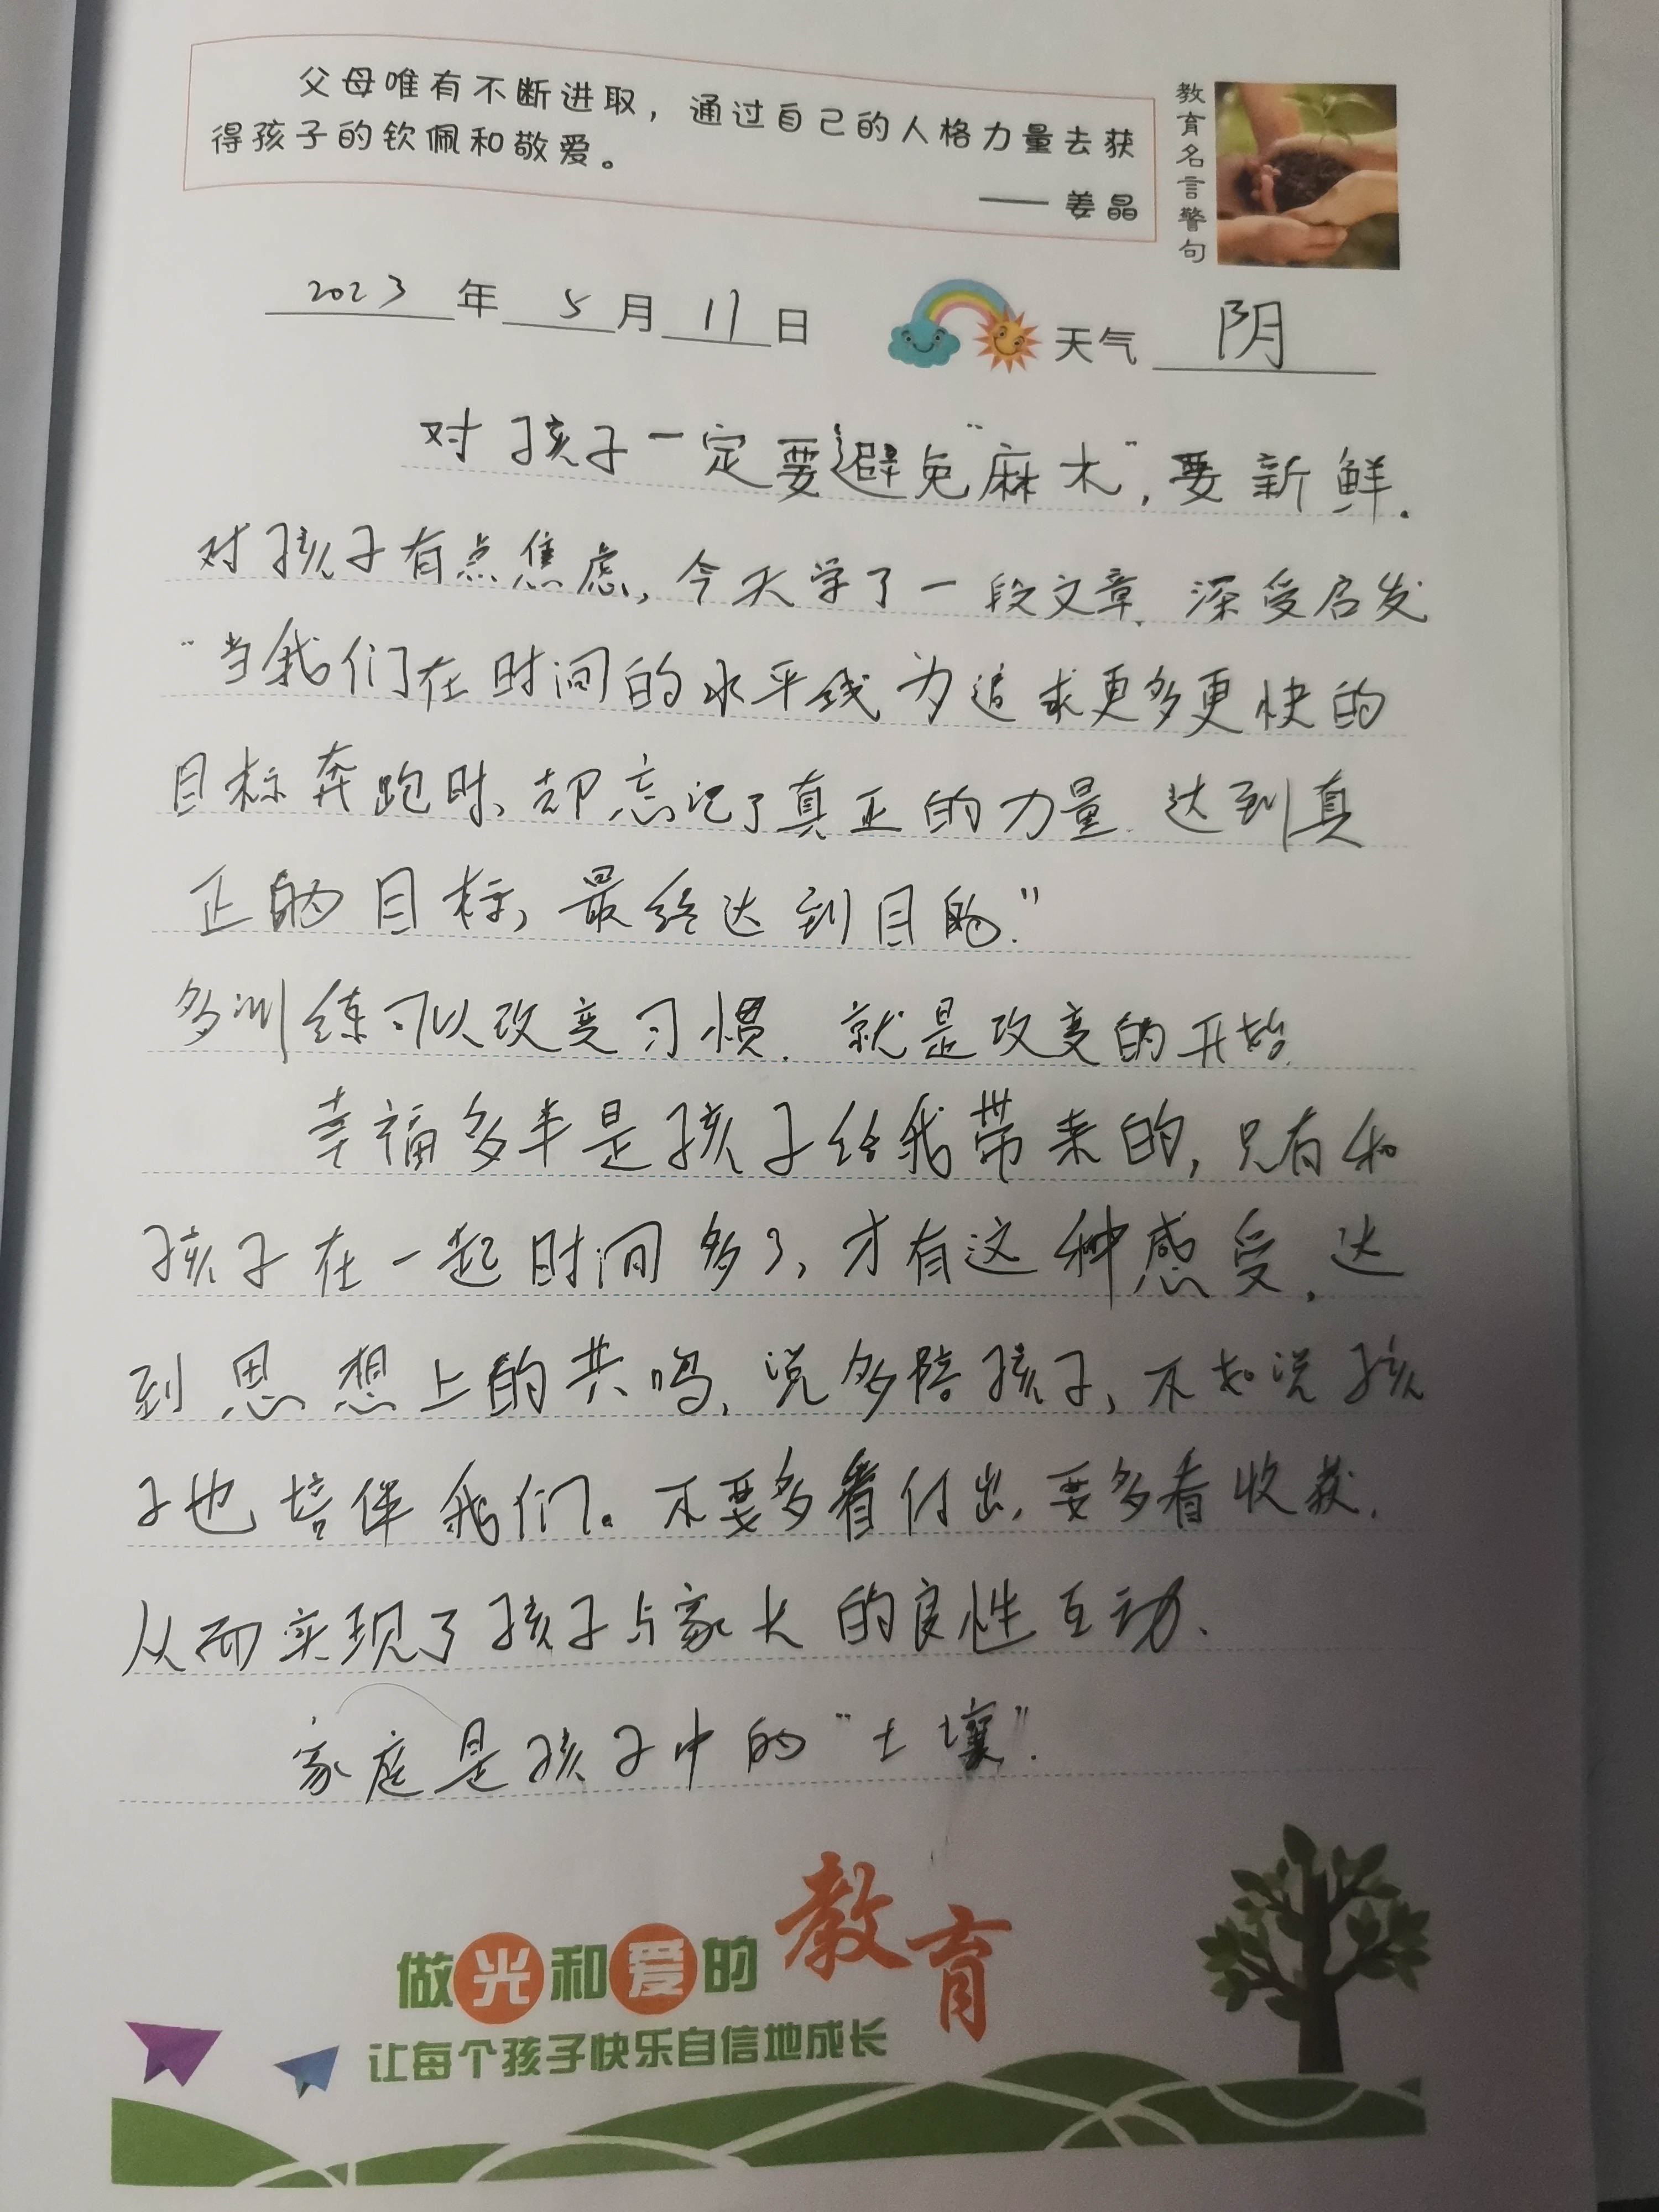 父母唯有不断进取，通过自己的人格力量去获
得孩子的钦佩和敬爱。
——姜晶
教育名言警句
2023年5月11日 天气 阴
对孩子一定要避免"麻木",要新鲜.
对孩子有点焦虑,今天学了一段文章.深受启发
"当我们在时间的水平线为追求更多更快的
目标奔跑时、却忘记了真正的力量.达到真
正的目标,最终达到目的."
多训练可以改变习惯.就是改变的开始.
幸福多半是孩子给我带来的,只有和
孩子在一起时间多了,才有这种感受.达
到思想上的共鸣,说多陪孩子,不如说孩
子也培伴我们。不要多看付出,要多看收获.
从而实现了孩子与家长的良性互动.
家庭是孩子中的"土壤".
做光和爱的教育
让每个孩子快乐自信地成长